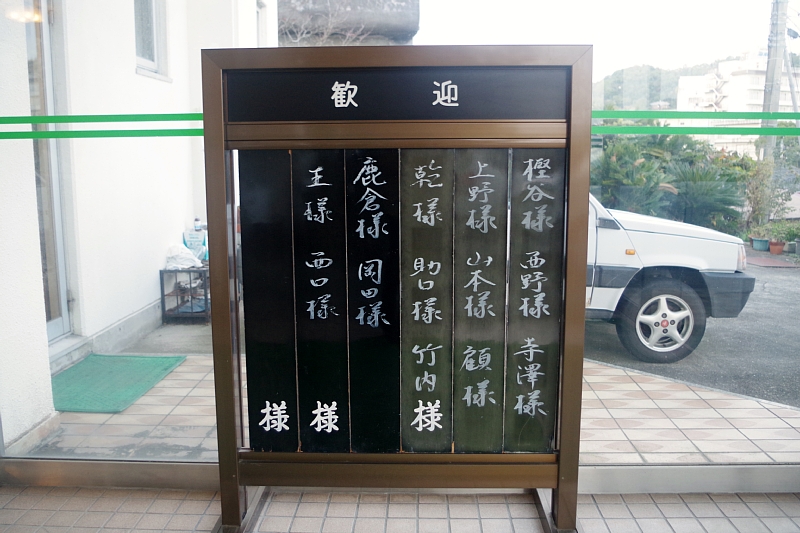 歓迎
樫谷様 西野様 寺澤様
上野様 山本様 顧様
乾様 助口様 竹内様
鹿倉様 岡田様
王様 西口様 様
様